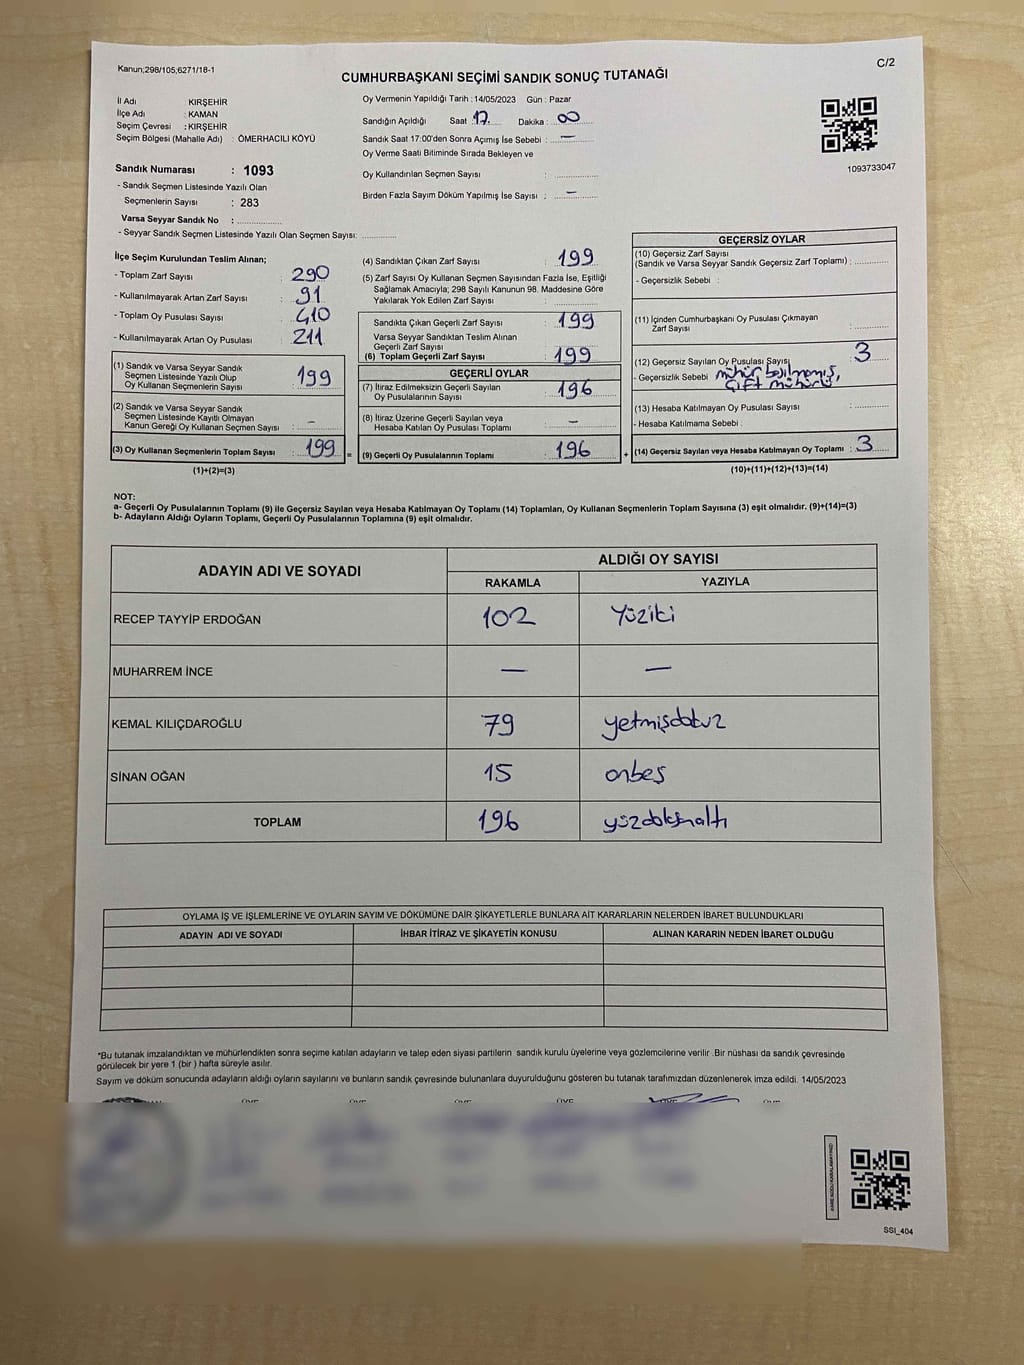 Kanun;298/105;6271/18-1
C/2
CUMHURBAŞKANI SEÇİMİ SANDIK SONUÇ TUTANAĞI
İl Adı : KIRŞEHİR
İlçe Adı : KAMAN
Seçim Çevresi : KIRŞEHİR
Seçim Bölgesi (Mahalle Adı) : ÖMERHACILI KÖYÜ
Sandık Numarası : 1093
- Sandık Seçmen Listesinde Yazılı Olan
Seçmenlerin Sayısı : 283
Varsa Seyyar Sandık No :
- Seyyar Sandık Seçmen Listesinde Yazılı Olan Seçmen Sayısı:
Oy Vermenin Yapıldığı Tarih : 14/05/2023 Gün : Pazar
Sandığın Açıldığı Saat : 17 Dakika : 00
Sandık Saat 17:00'den Sonra Açımış İse Sebebi : —
Oy Verme Saati Bitiminde Sırada Bekleyen ve
Oy Kullandırılan Seçmen Sayısı :
Birden Fazla Sayım Döküm Yapılmış İse Sayısı : —
1093733047
İlçe Seçim Kurulundan Teslim Alınan;
- Toplam Zarf Sayısı : 290
- Kullanılmayarak Artan Zarf Sayısı : 91
- Toplam Oy Pusulası Sayısı : 410
- Kullanılmayarak Artan Oy Pusulası : 211
(1) Sandık ve Varsa Seyyar Sandık
Seçmen Listesinde Yazılı Olup
Oy Kullanan Seçmenlerin Sayısı : 199
(2) Sandık ve Varsa Seyyar Sandık
Seçmen Listesinde Kayıtlı Olmayan
Kanun Gereği Oy Kullanan Seçmen Sayısı : -
(3) Oy Kullanan Seçmenlerin Toplam Sayısı : 199
(1)+(2)=(3)
=
(4) Sandıktan Çıkan Zarf Sayısı : 199
(5) Zarf Sayısı Oy Kullanan Seçmen Sayısından Fazla İse, Eşitliği
Sağlamak Amacıyla; 298 Sayılı Kanunun 98. Maddesine Göre
Yakılarak Yok Edilen Zarf Sayısı :
Sandıkta Çıkan Geçerli Zarf Sayısı : 199
Varsa Seyyar Sandıktan Teslim Alınan
Geçerli Zarf Sayısı :
(6) Toplam Geçerli Zarf Sayısı : 199
GEÇERLİ OYLAR
(7) İtiraz Edilmeksizin Geçerli Sayılan
Oy Pusulalarının Sayısı : 196
(8) İtiraz Üzerine Geçerli Sayılan veya
Hesaba Katılan Oy Pusulası Toplamı : -
(9) Geçerli Oy Pusulalarının Toplamı : 196
+
GEÇERSİZ OYLAR
(10) Geçersiz Zarf Sayısı
(Sandık ve Varsa Seyyar Sandık Geçersiz Zarf Toplamı) :
- Geçersizlik Sebebi :
(11) İçinden Cumhurbaşkanı Oy Pusulası Çıkmayan
Zarf Sayısı :
(12) Geçersiz Sayılan Oy Pusulası Sayısı : 3
- Geçersizlik Sebebi mühür basılmamış,
çift mühürlü
(13) Hesaba Katılmayan Oy Pusulası Sayısı :
- Hesaba Katılmama Sebebi :
(14) Geçersiz Sayılan veya Hesaba Katılmayan Oy Toplamı : 3
(10)+(11)+(12)+(13)=(14)
NOT:
a- Geçerli Oy Pusulalarının Toplamı (9) ile Geçersiz Sayılan veya Hesaba Katılmayan Oy Toplamı (14) Toplamları, Oy Kullanan Seçmenlerin Toplam Sayısına (3) eşit olmalıdır. (9)+(14)=(3)
b- Adayların Aldığı Oyların Toplamı, Geçerli Oy Pusulalarının Toplamına (9) eşit olmalıdır.
ADAYIN ADI VE SOYADI
ALDIĞI OY SAYISI
RAKAMLA YAZIYLA
RECEP TAYYİP ERDOĞAN 102 Yüziki
MUHARREM İNCE — —
KEMAL KILIÇDAROĞLU 79 yetmişdokuz
SİNAN OĞAN 15 onbeş
TOPLAM 196 yüzdoksanaltı
OYLAMA İŞ VE İŞLEMLERİNE VE OYLARIN SAYIM VE DÖKÜMÜNE DAİR ŞİKAYETLERLE BUNLARA AİT KARARLARIN NELERDEN İBARET BULUNDUKLARI
ADAYIN ADI VE SOYADI İHBAR İTİRAZ VE ŞİKAYETİN KONUSU ALINAN KARARIN NEDEN İBARET OLDUĞU
*Bu tutanak imzalandıktan ve mühürlendikten sonra seçime katılan adayların ve talep eden siyasi partilerin sandık kurulu üyelerine veya gözlemcilerine verilir .Bir nüshası da sandık çevresinde
görülecek bir yere 1 (bir ) hafta süreyle asılır.
Sayım ve döküm sonucunda adayların aldığı oyların sayılarını ve bunların sandık çevresinde bulunanlara duyurulduğunu gösteren bu tutanak tarafımızdan düzenlenerek imza edildi. 14/05/2023
SSI_404